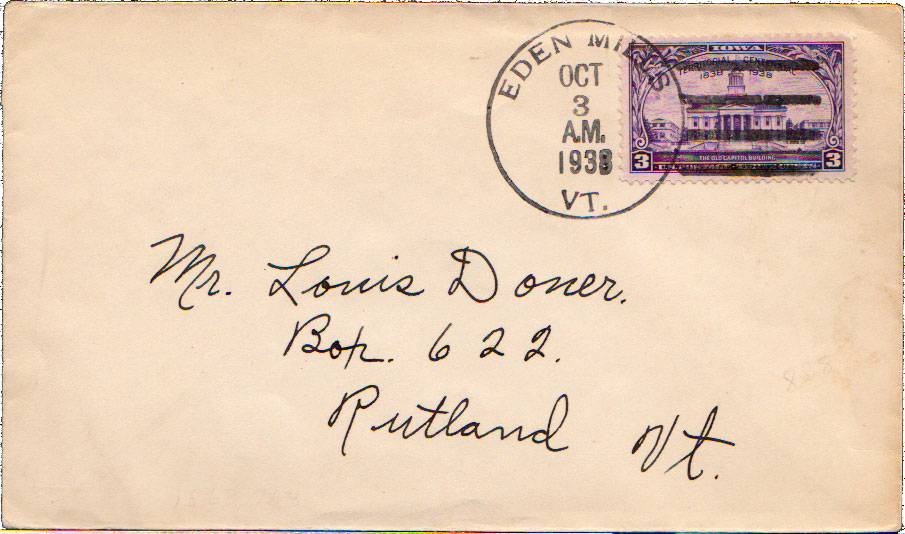 EDEN MILLS
OCT
3
A.M.
1938
VT.
IOWA
TERRITORIAL CENTENNIAL
1838 1938
THE OLD CAPITOL BUILDING
3 3
Mr. Louis Doner.
Box. 622.
Rutland Vt.